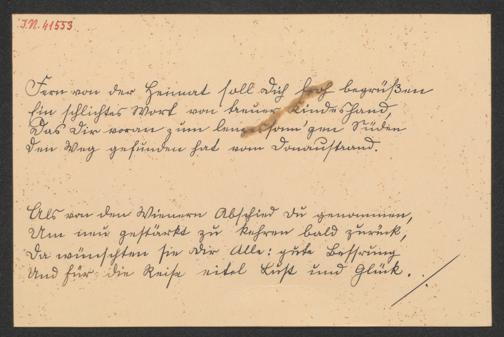 J.N. 41553
Fern von der Heimat soll Dich froh begrüßen
Ein schlichtes Wort von treuer Kindeshand,
Das Dir voran zum sonn'gen Süden
Den Weg gefunden hat vom Donaustrand.
Als von den Wienern Abschied Du genommen,
Um neu gestärkt zu kehren bald zurück,
Da wünschten sie Dir Alle: gute Besserung
Und für die Reise eitel Lust und Glück.